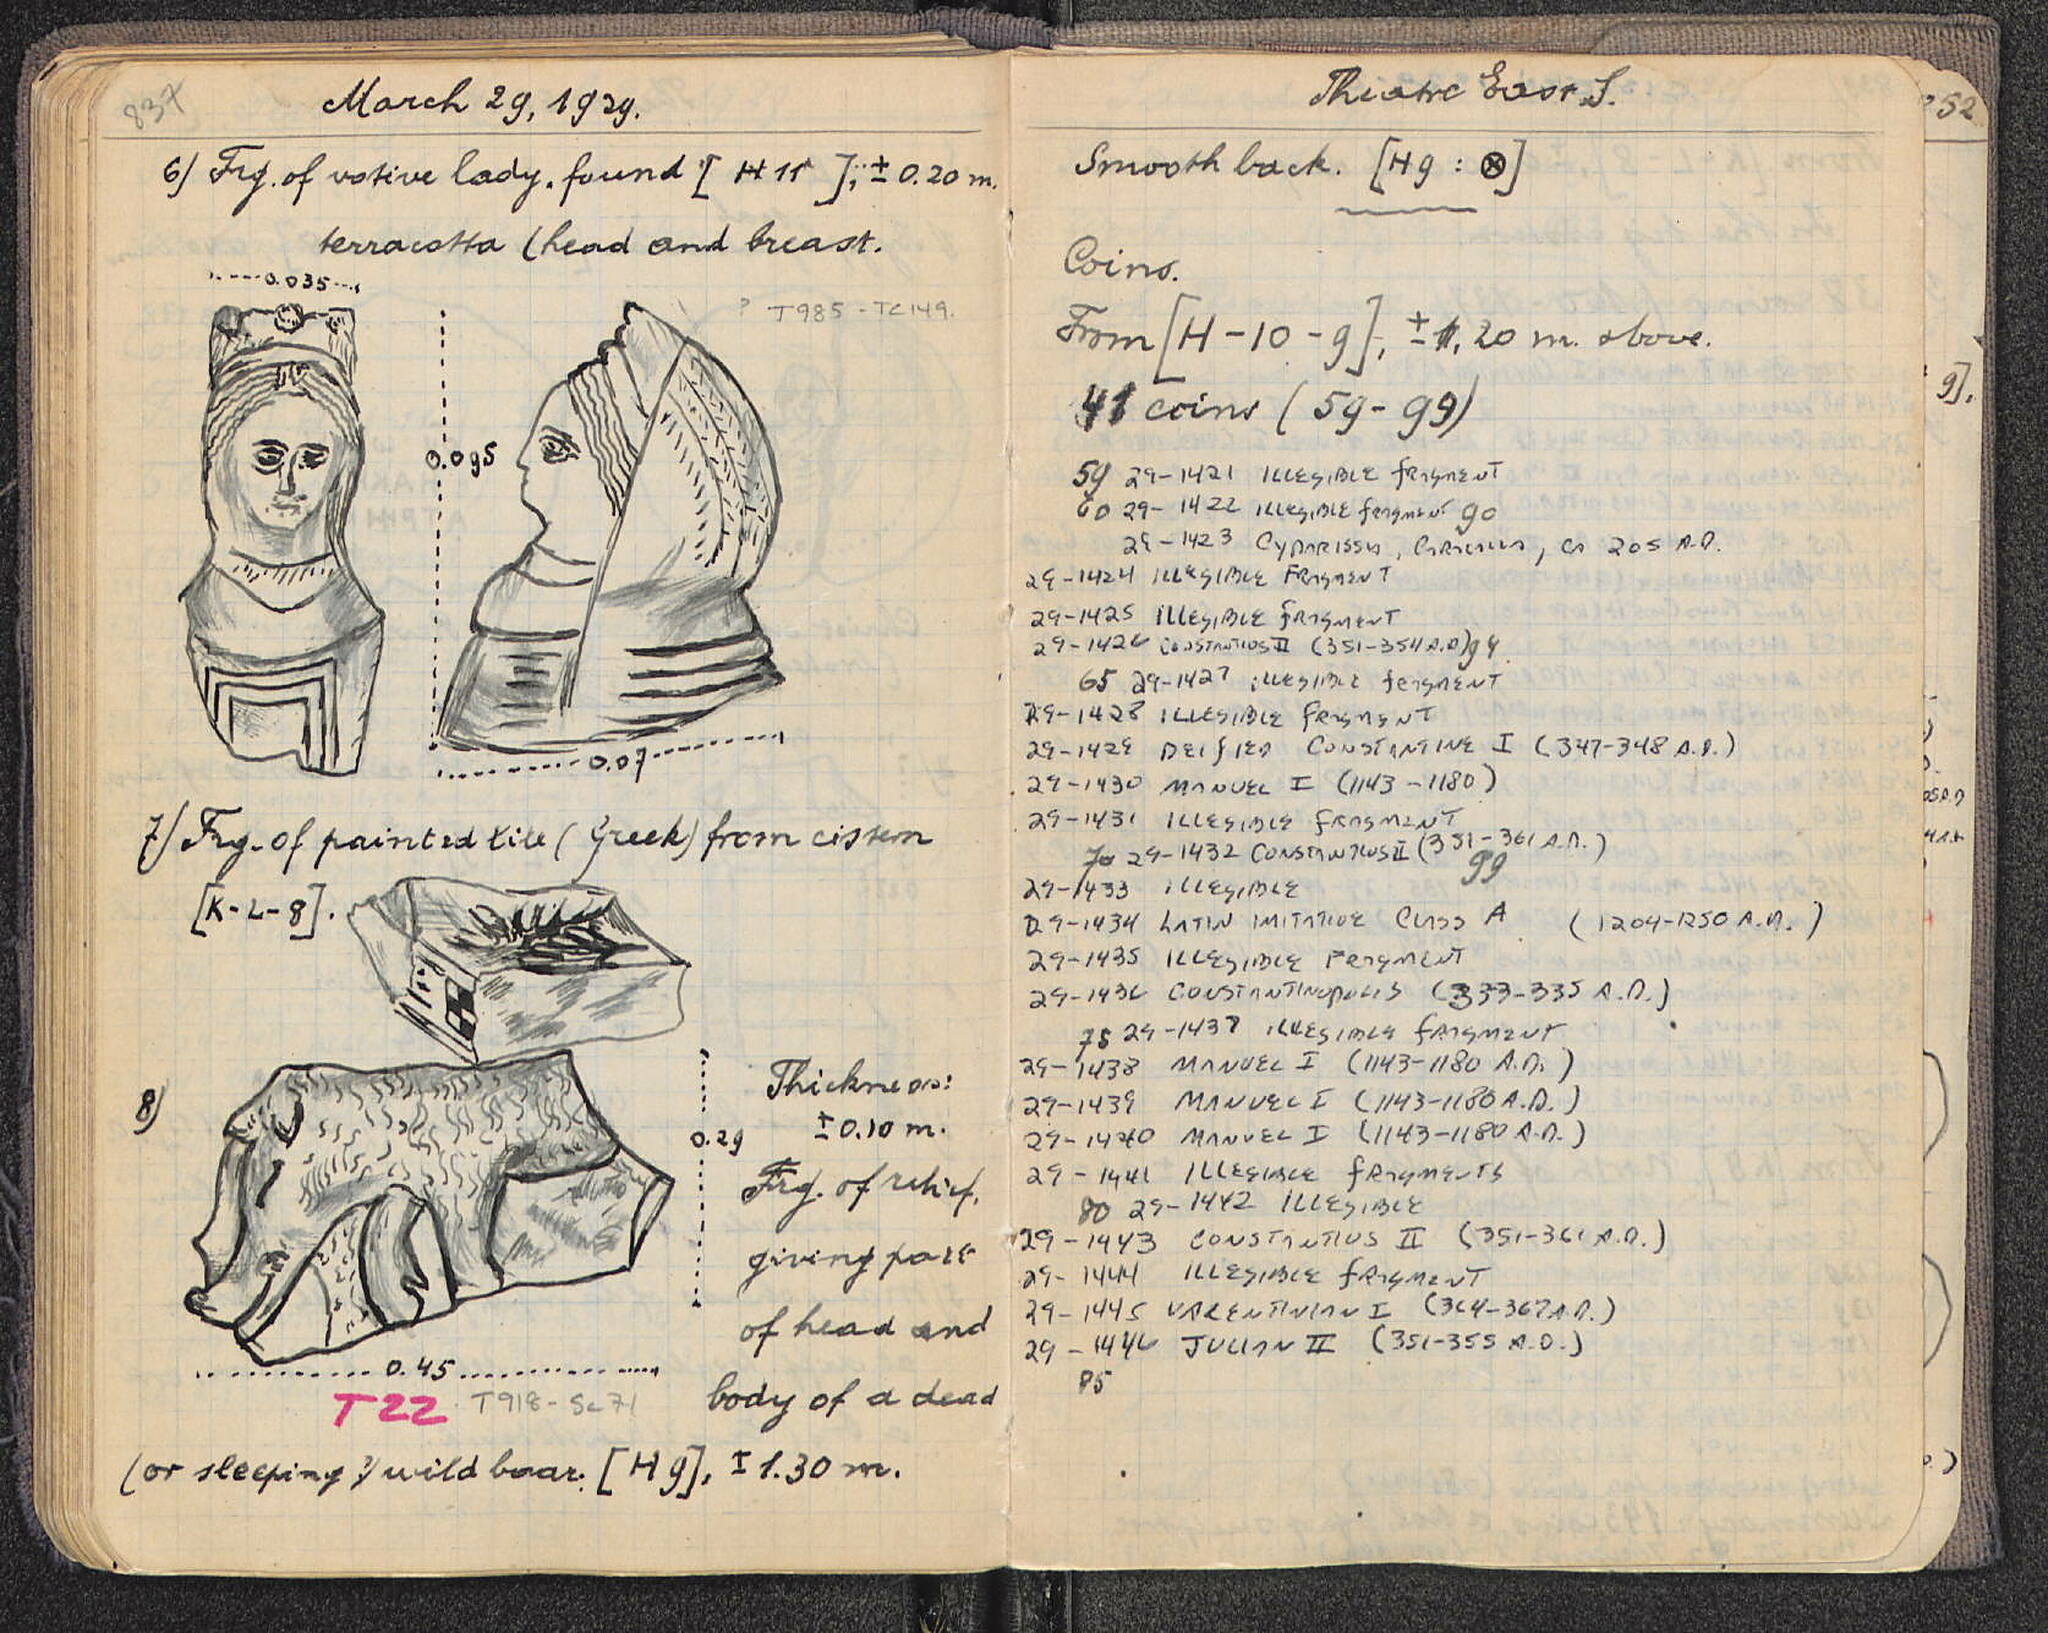 837
March 29, 1929.
6) Frg. of votive lady, found [H 11]; ± 0.20 m.
terracotta (head and breast.
0.035
? T985 - TC149.
0.095
0.07
7) Frg. of painted tile (Greek) from cistern
[K-L-8].
8)
0.29
Thickness:
± 0.10 m.
Frg. of relief,
giving part
of head and
0.45
T22 T918 - Sc 71
body of a dead
(or sleeping?) wild boar. [H 9], ± 1.30 m.
Theatre East S.
Smooth back. [H9 : ⊗]
Coins.
From [H-10-9], ± 1.20 m. above.
41 coins (59-99)
59 29-1421 ILLEGIBLE fragment
60 29-1422 ILLEGIBLE fragment 90
29-1423 CYPARISSIA, CARACALLA, CA 205 A.D.
29-1424 ILLEGIBLE FRAGMENT
29-1425 ILLEGIBLE fragment
29-1426 CONSTANTIUS II (351-354 A.D) 94
65 29-1427 ILLEGIBLE fragment
29-1428 ILLEGIBLE fragment
29-1429 DEIFIED CONSTANTINE I (347-348 A.D.)
29-1430 MANUEL I (1143-1180)
29-1431 ILLEGIBLE fragment
70 29-1432 CONSTANTIUS II (351-361 A.D.)
99
29-1433 ILLEGIBLE
29-1434 LATIN IMITATIVE CLASS A (1204-1250 A.D.)
29-1435 ILLEGIBLE FRAGMENT
29-1436 CONSTANTINOPOLIS (333-335 A.D.)
75 29-1437 ILLEGIBLE fragment
29-1438 MANUEL I (1143-1180 A.D.)
29-1439 MANUEL I (1143-1180 A.D.)
29-1440 MANUEL I (1143-1180 A.D.)
29-1441 ILLEGIBLE fragments
80 29-1442 ILLEGIBLE
29-1443 CONSTANTIUS II (351-361 A.D.)
29-1444 ILLEGIBLE fragment
29-1445 VALENTINIAN I (364-367 A.D.)
29-1446 JULIAN II (351-355 A.D.)
85
52
9].